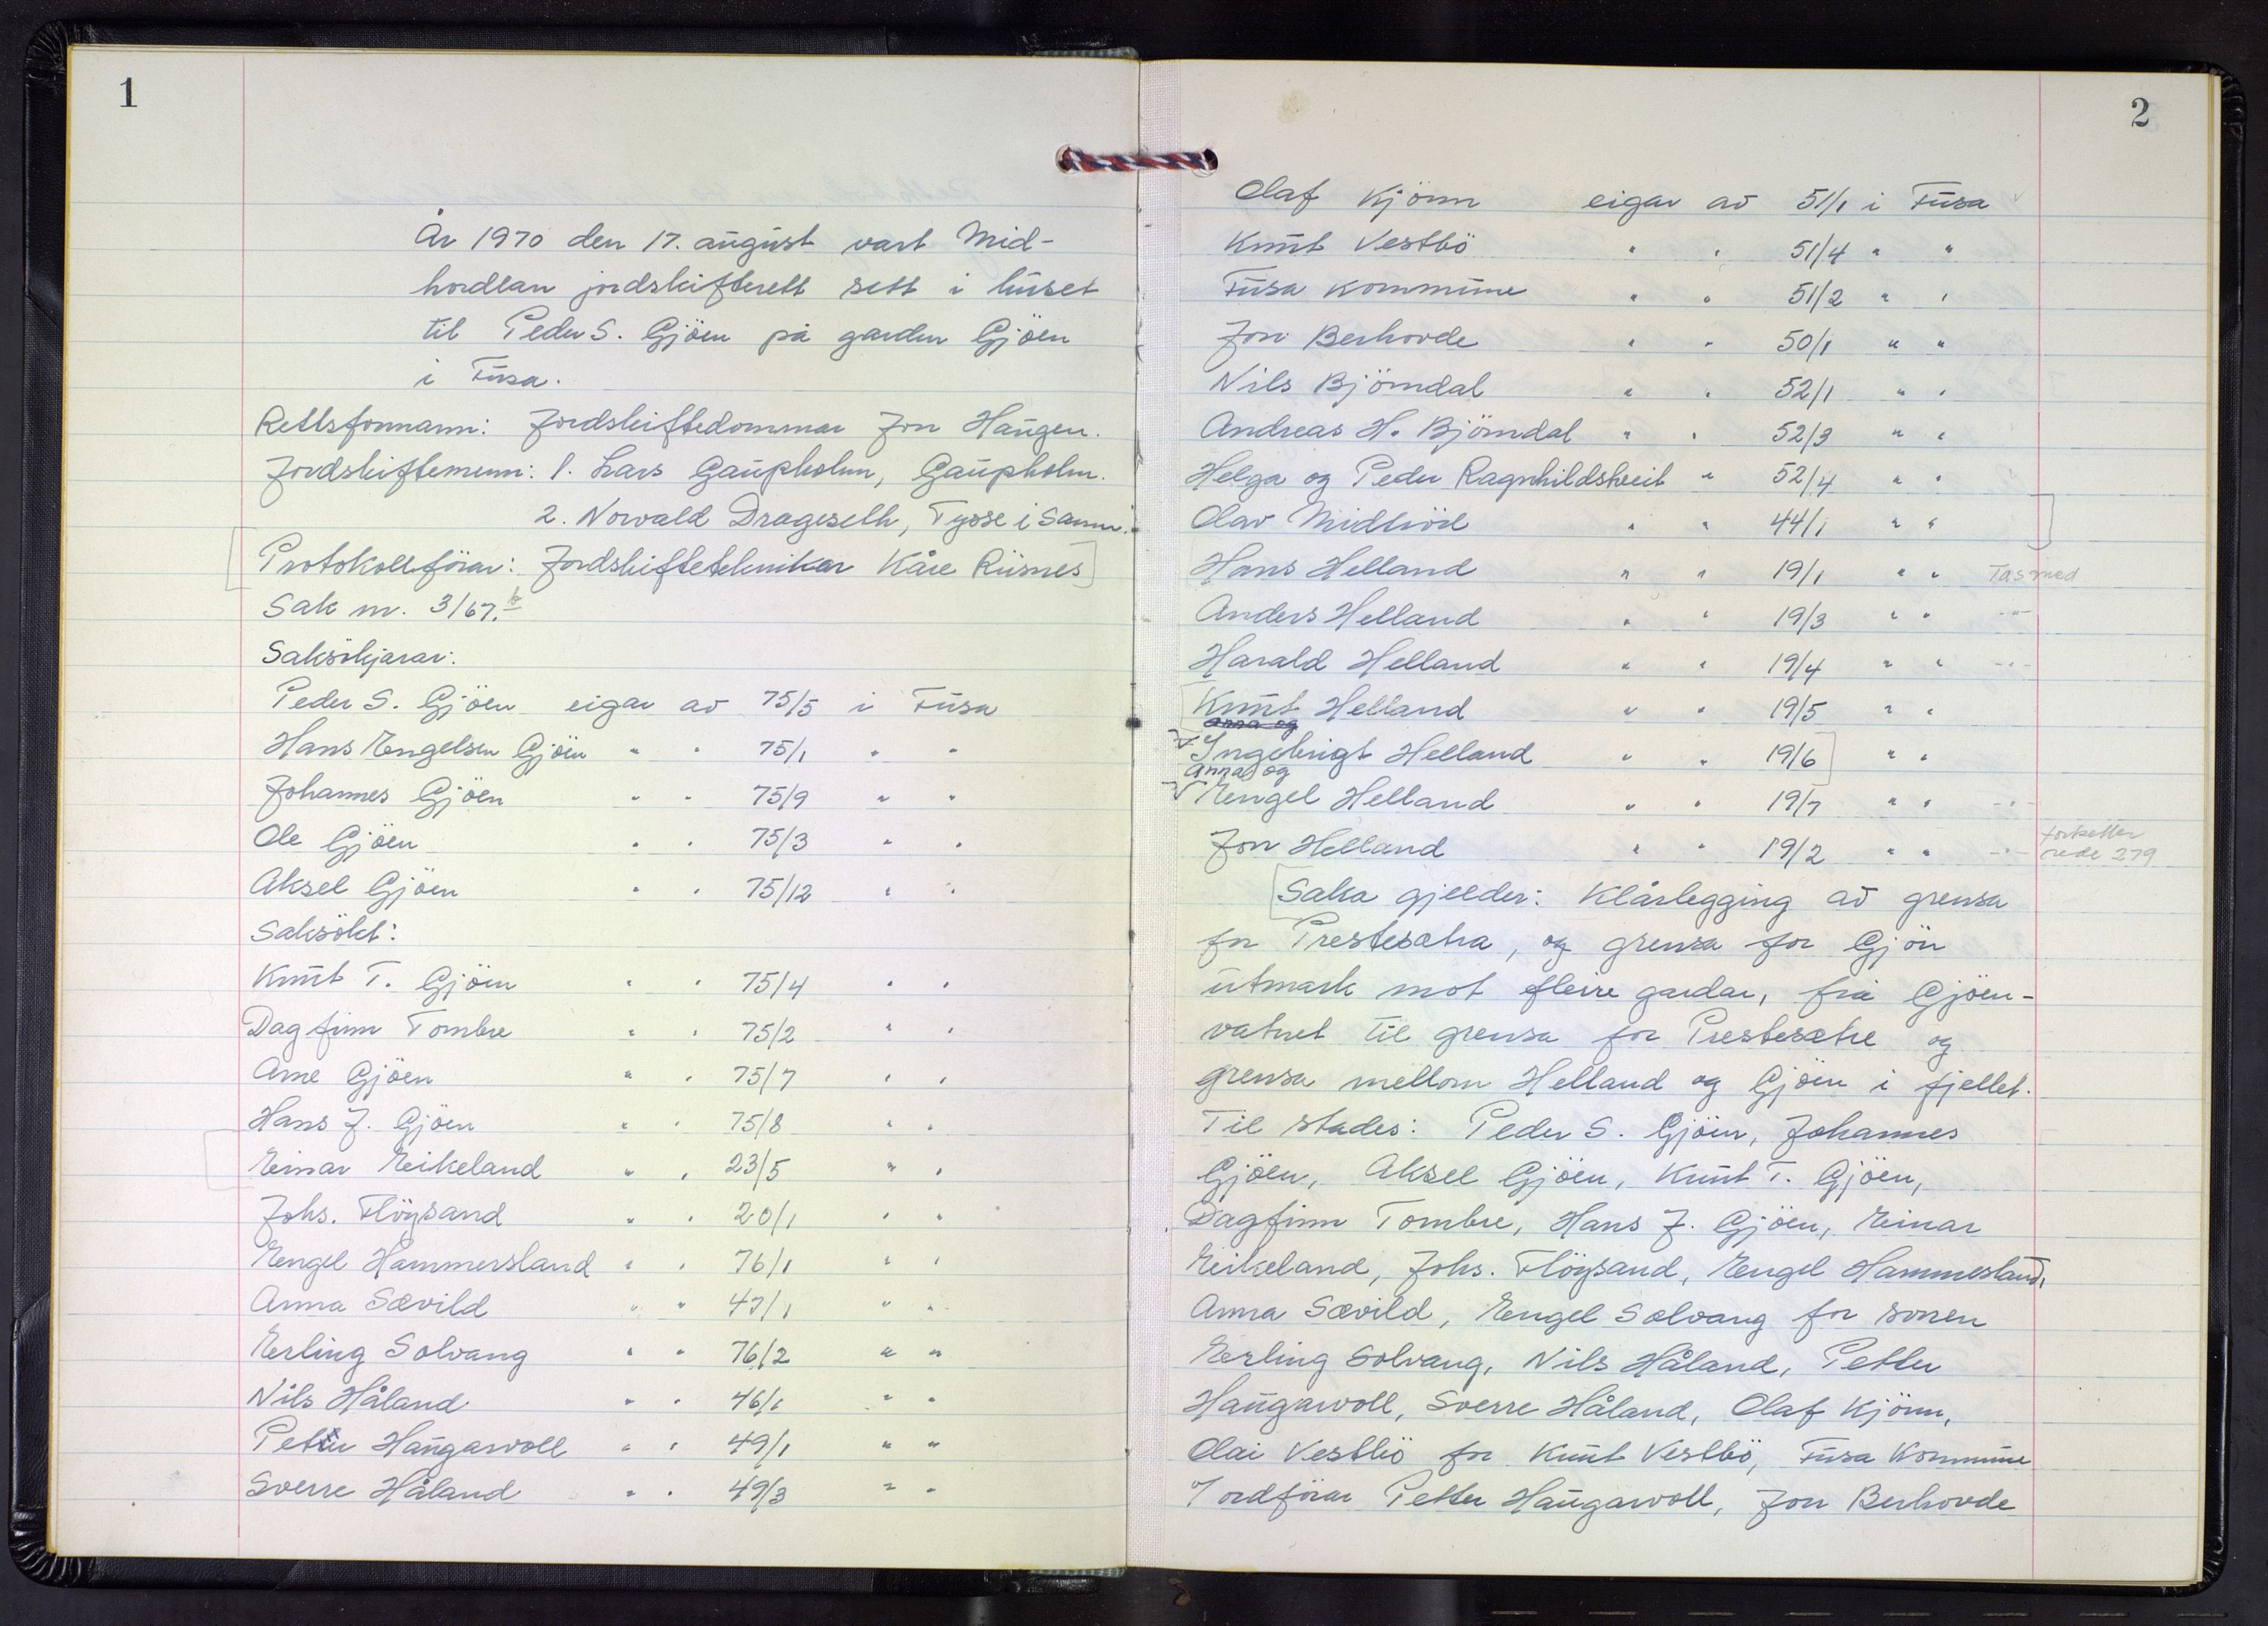 1
År 1970 den 17. august vart Mid-
hordlan jordskifterett sett i huset
til Peder S. Gjöen på garden Gjöen
i Fusa.
Rettsformann: Jordskiftedommar Jon Haugen.
Jordskiftemenn: 1. Lars Gaupholm, Gaupholm.
2. Norvald Drageseth, Tysse i Samn.
Protokollförar: Jordskifteteknikar Kåre Riisnes
Sak nr. 3/67. b
Saksökjarar:
Peder S. Gjöen eigar av 75/5 i Fusa
Hans Engelsen Gjöen " " 75/1 " "
Johannes Gjöen " " 75/9 " "
Ole Gjöen " " 75/3 " "
Aksel Gjöen " " 75/12 " "
Saksökt:
Knut T. Gjöen " " 75/4 " "
Dagfinn Tombre " " 75/2 " "
Arne Gjöen " " 75/7 " "
Hans J. Gjöen " " 75/8 " "
Einar Eikeland " " 23/5 " "
Johs. Flöysand " " 20/1 " "
Engel Hammersland " " 76/1 " "
Anna Sævild " " 47/1 " "
Erling Solvang " " 76/2 " "
Nils Håland " " 46/1 " "
Petter Haugarvoll " " 49/1 " "
Sverre Håland " " 49/3 " "
2
Olaf Kjönn eigar av 51/1 i Fusa
Knut Vestbö " " 51/4 " "
Fusa kommune " " 51/2 " "
Jon Berhovde " " 50/1 " "
Nils Björndal " " 52/1 " "
Andreas H. Björndal " " 52/3 " "
Helga og Peder Ragnhildstveit " 52/4 " "
Olav Midtböe " " 44/1 " "
Hans Helland " " 19/1 " " Tas med
Anders Helland " " 19/3 " " -"-
Harald Helland " " 19/4 " " -"-
Knut Helland " " 19/5 " "
Anna og
Ingebrigt Helland " " 19/6 " "
Anna og
Engel Helland " " 19/7 " " -"-
Jon Helland " " 19/2 " " -"- fortsetter
side 279
Saka gjelder: Klårlegging av grensa
for Prestesætra, og grensa for Gjön
utmark mot fleire gardar, frå Gjöen-
vatnet til grensa for Prestesætre og
grensa mellom Helland og Gjöen i fjellet.
Til stades: Peder S. Gjöen, Johannes
Gjöen, Aksel Gjöen, Knut T. Gjöen,
Dagfinn Tombre, Hans J. Gjöen, Einar
Eikeland, Johs. Flöysand, Engel Hammersland,
Anna Sævild, Engel Solvang for sonen
Erling Solvang, Nils Håland, Petter
Haugarvoll, Sverre Håland, Olaf Kjönn,
Olai Vestbö for Knut Vestbö, Fusa Kommune
v/ ordförar Petter Haugarvoll, Jon Berhovde